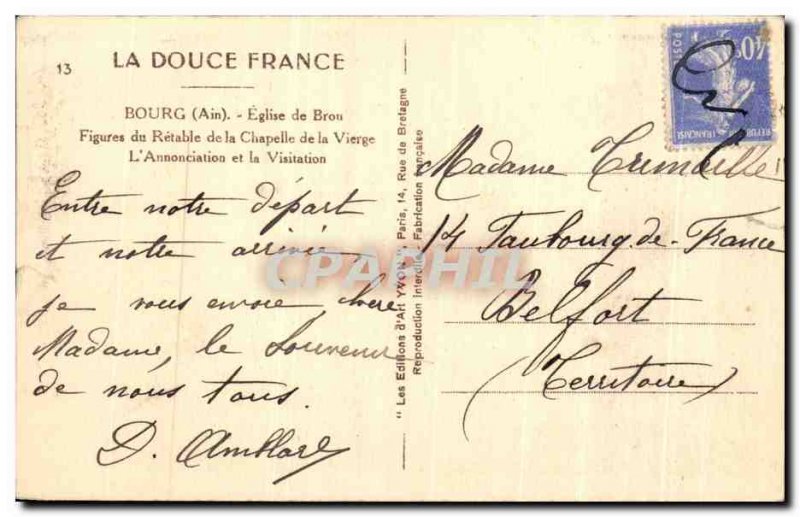 13
LA DOUCE FRANCE
BOURG (Ain). - Église de Brou
Figures du Rétable de la Chapelle de la Vierge
L'Annonciation et la Visitation
Entre notre départ
et notre arrivée
je vous envoie, chère
Madame, le souvenir
de nous tous.
D. Amblard
" Les Editions d'Art YVON ", Paris, 14, Rue de Bretagne
Reproduction interdite - Fabrication Française
40c
POSTES
REPUBLIQUE FRANCAISE
Madame Tremaille
14 Faubourg-de-France
Belfort
(Territoire)
CPAPHIL